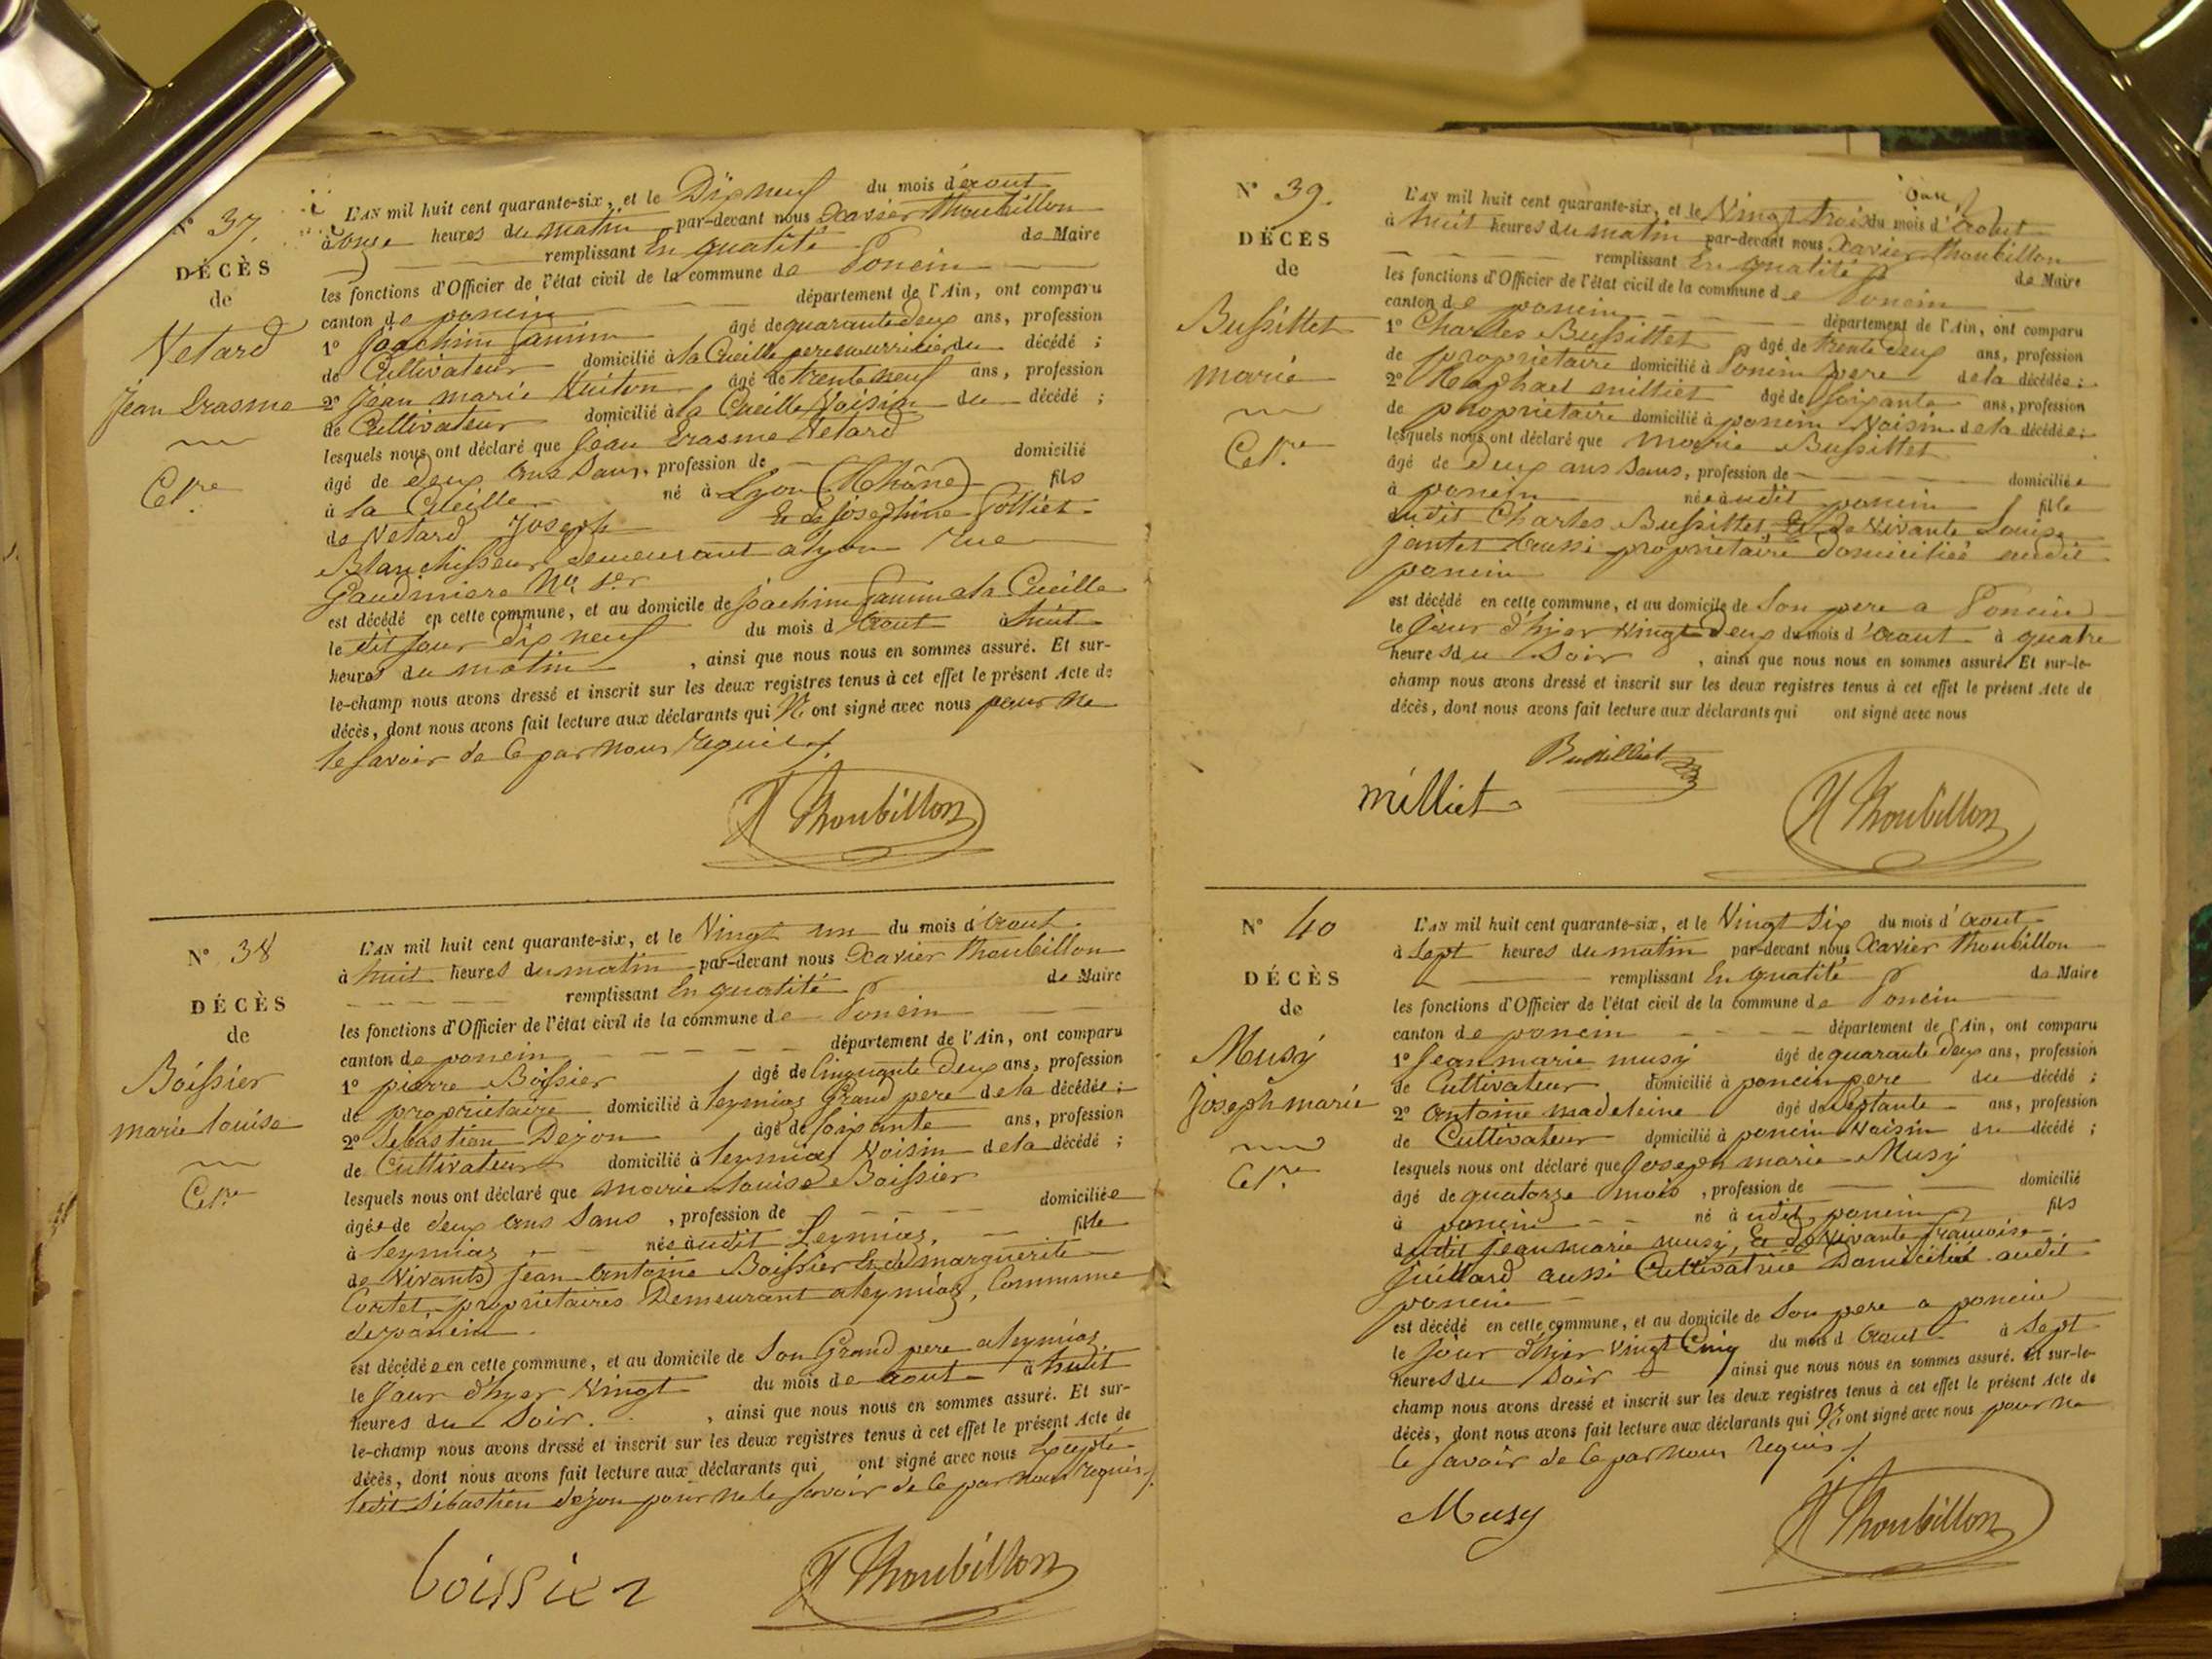 N° 37.
DÉCÈS
de
Vetard
Jean Erasme
Cel.re
L'AN mil huit cent quarante-six, et le Dix neuf du mois d'aout
à onze heures du matin par-devant nous Xavier Thoubillon
remplissant En qualité de Maire
les fonctions d'Officier de l'état civil de la commune de Poncin
canton de poncin département de l'Ain, ont comparu
1° Joachim Janin âgé de quarante deux ans, profession
de Cultivateur domicilié à la Cueille pere nourricier du décédé ;
2° Jean marie âgé de trente neuf ans, profession
de Cultivateur domicilié à la Cueille Voisin du décédé ;
lesquels nous ont déclaré que Jean Erasme Vetard
âgé de deux ans sans, profession de domicilié
à la Cueille né à Lyon (Rhône) fils
de Vetard Joseph Et de Josephine Polliet
Blanchisseur demeurant a lyon rue
Gaudiniere N° 1er
est décédé en cette commune, et au domicile de Joachim Janin a la Cueille
le dit jour dix neuf du mois d'aout à huit
heures du matin, ainsi que nous nous en sommes assuré. Et sur-
le-champ nous avons dressé et inscrit sur les deux registres tenus à cet effet le présent Acte de
décès, dont nous avons fait lecture aux déclarants qui N'ont signé avec nous pour ne
le savoir de ce par nous requis /.
X Thoubillon
N° 38
DÉCÈS
de
Boissier
marie louise
Cel.re
L'AN mil huit cent quarante-six, et le Vingt un du mois d'aout
à huit heures du matin par-devant nous Xavier Thoubillon
remplissant En qualité de Maire
les fonctions d'Officier de l'état civil de la commune de Poncin
canton de poncin département de l'Ain, ont comparu
1° pierre Boissier âgé de Cinquante deux ans, profession
de propriétaire domicilié à leymiaz Grand pere de la décédée ;
2° Sebastien Dejon âgé de soixante ans, profession
de Cultivateur domicilié à leymiaz Voisin de la décédé ;
lesquels nous ont déclaré que marie louise Boissier
âgée de deux ans sans, profession de domiciliée
à leymiaz née audit Leymiaz, fille
de Vivants Jean Antoine Boissier Et de marguerite
Cortet propriétaires Demeurant a leymiaz, Commune
de poncin.
est décédée en cette commune, et au domicile de Son Grand pere a leymiaz
le Jour d'hyer Vingt du mois de aout à huit
heures du Soir., ainsi que nous nous en sommes assuré. Et sur-
le-champ nous avons dressé et inscrit sur les deux registres tenus à cet effet le présent Acte de
décès, dont nous avons fait lecture aux déclarants qui ont signé avec nous Excepté
ledit Sébastien dejon pour ne le savoir de ce par nous requis /.
boissier
X Thoubillon
N° 39.
DÉCÈS
de
Bussillet
marie
Cel.re
L'AN mil huit cent quarante-six, et le Vingt trois du mois d'aout
à huit heures du matin par-devant nous Xavier Thoubillon
remplissant En qualité de Maire
les fonctions d'Officier de l'état civil de la commune de Poncin
canton de poncin département de l'Ain, ont comparu
1° Charles Bussillet âgé de trente deux ans, profession
de propriétaire domicilié à Poncin pere de la décédée ;
2° Raphael milliet âgé de Soixante ans, profession
de propriétaire domicilié à poncin Voisin de la décédée ;
lesquels nous ont déclaré que Marie Bussillet
âgé de deux ans sans, profession de domiciliée
à poncin née audit poncin fille
dudit Charles Bussillet, Et de Vivante Louise
jantet aussi propriétaire domiciliée audit
poncin
est décédé en cette commune, et au domicile de Son pere a Poncin
le Jour d'hyer Vingt deux du mois d'aout à quatre
heures du Soir, ainsi que nous nous en sommes assuré. Et sur-le-
champ nous avons dressé et inscrit sur les deux registres tenus à cet effet le présent Acte de
décès, dont nous avons fait lecture aux déclarants qui ont signé avec nous
Bussilliet
milliet
X Thoubillon
N° 40
DÉCÈS
de
Musy
Joseph marie
Cel.re
L'AN mil huit cent quarante-six, et le Vingt Six du mois d'aout
à Sept heures du matin par-devant nous Xavier Thoubillon
remplissant En qualité de Maire
les fonctions d'Officier de l'état civil de la commune de Poncin
canton de poncin département de l'Ain, ont comparu
1° Jean marie musy âgé de quarante deux ans, profession
de Cultivateur domicilié à poncin pere du décédé ;
2° Antoine madeleine âgé de Septante ans, profession
de Cultivateur domicilié à poncin Voisin du décédé ;
lesquels nous ont déclaré que Joseph marie Musy
âgé de quatorze mois, profession de domicilié
à poncin né audit poncin fils
dudit Jean marie musy, Et de Vivante françoise
Juillard aussi Cultivatrice Domiciliée audit
poncin
est décédé en cette commune, et au domicile de Son pere a poncin
le Jour d'hyer Vingt Cinq du mois d'aout à Sept
heures du Soir ainsi que nous nous en sommes assuré. Et sur-le-
champ nous avons dressé et inscrit sur les deux registres tenus à cet effet le présent Acte de
décès, dont nous avons fait lecture aux déclarants qui N'ont signé avec nous pour ne
le savoir de ce par nous requis /.
Musy
X Thoubillon